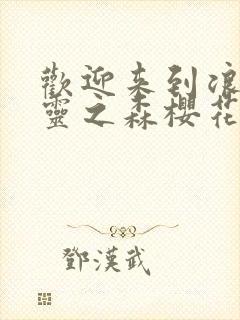 歡迎来到浪
靈之森櫻花
鄧漢武